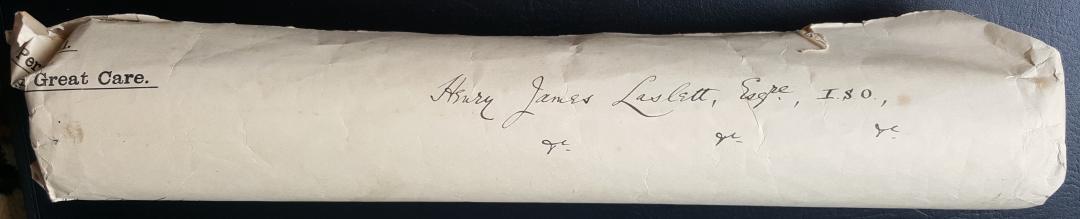 Per
Great Care.
Henry James Laslett, Esqre., I.S.O.,
&c. &c. &c.